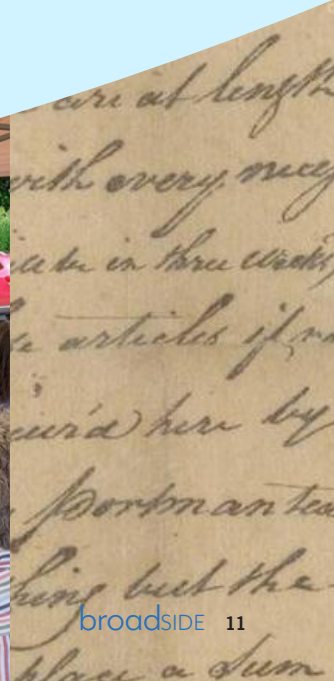 are at length
with every
in three weeks,
articles if
here by
Portmanteau
but the
broadSIDE 11
place a Sum